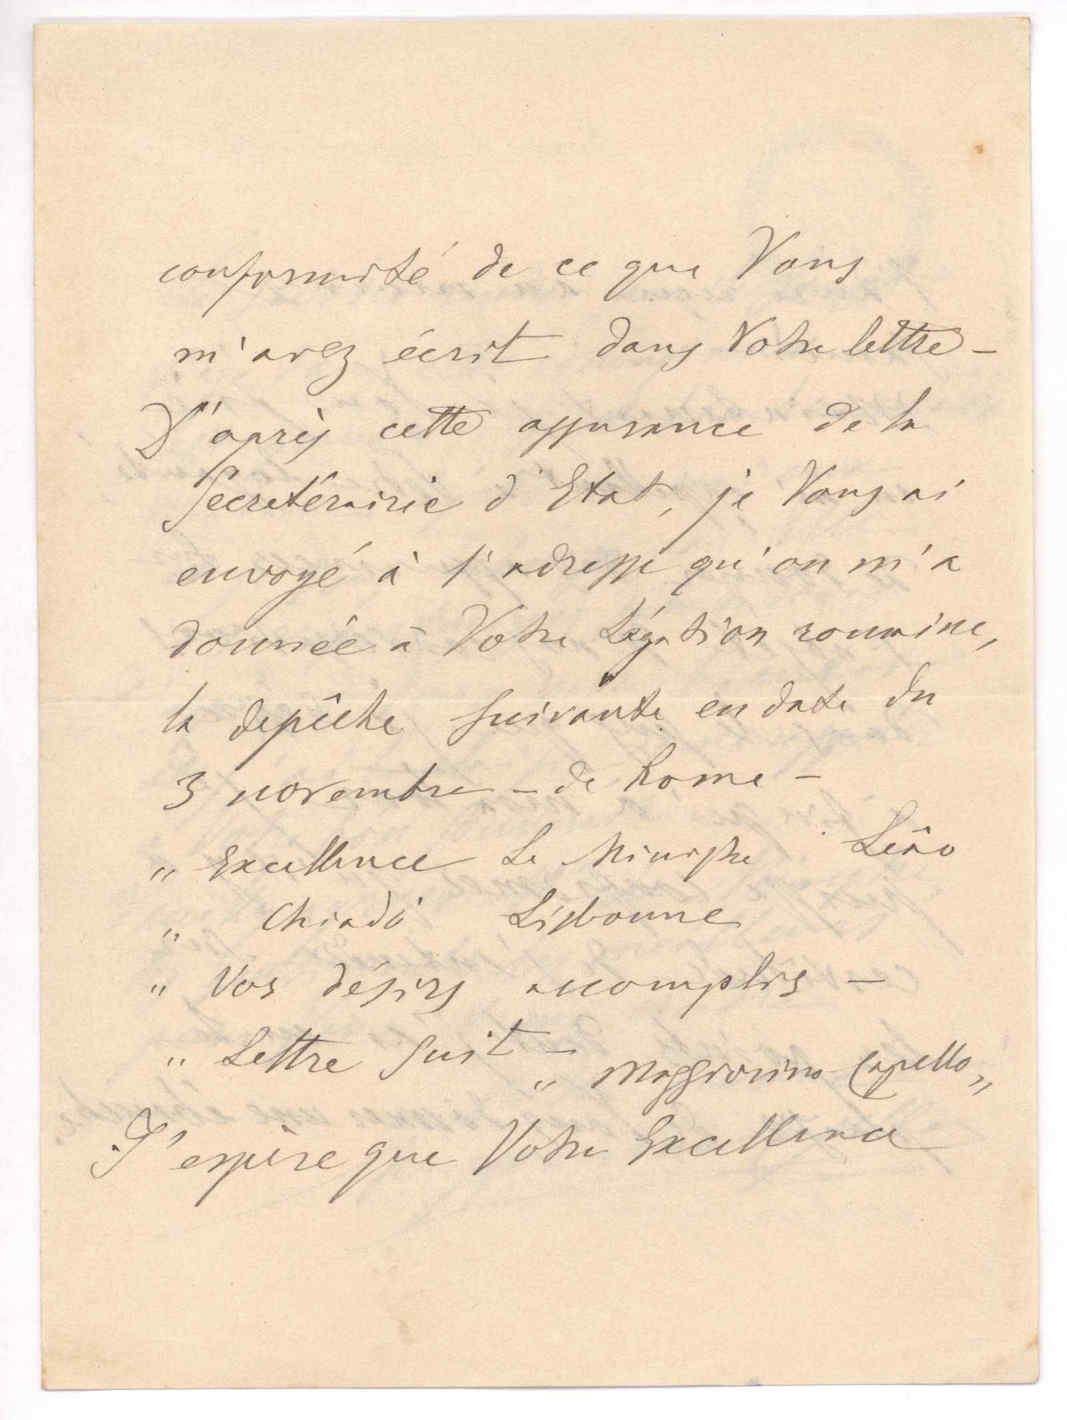 conformité de ce que Vous
m'avez écrit dans Votre lettre –
D'après cette assurance de la
Secretérairie d'Etat, je Vous ai
envoyé à l'adresse qu'on m'a
donnée à Votre Légation roumine,
la depêche suivante en date du
3 novembre – de Rome –
„ Excellence Le Ministre Leão
„ Chiado Lisbonne
„ Vos désirs accomplis –
„ Lettre suit – „ Maggiorino Capello „
J'espère que Votre Excellence